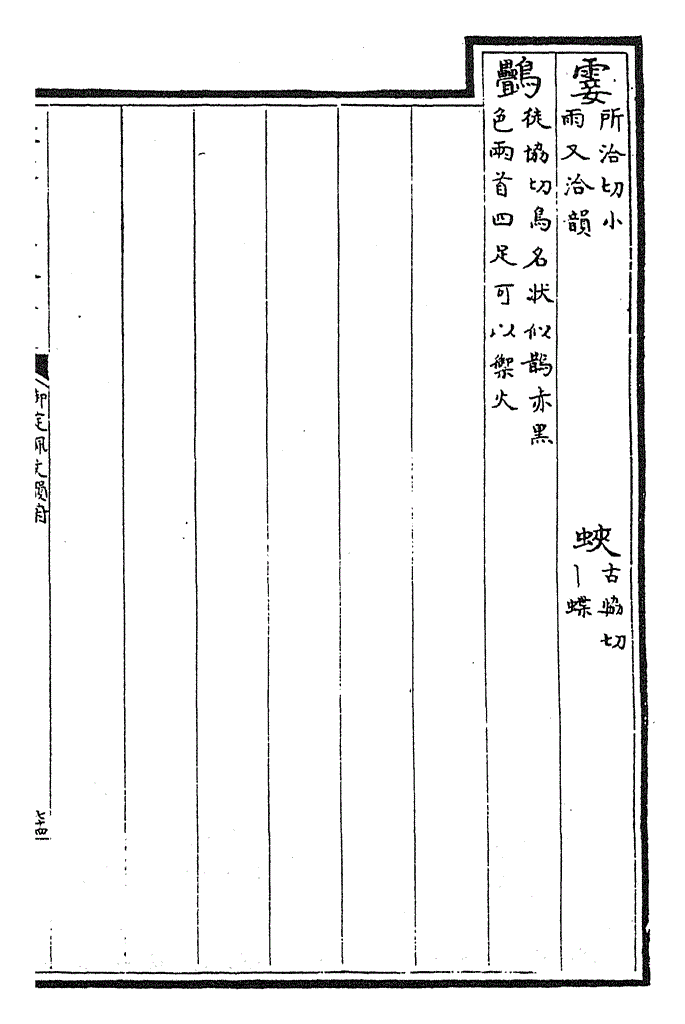 霎
所洽切小
雨又洽韻
蛺
古協切
丨蝶
鸓
徒協切鳥名狀似鵲赤黑
色兩首四足可以禦火
御定佩文韻府
七十四